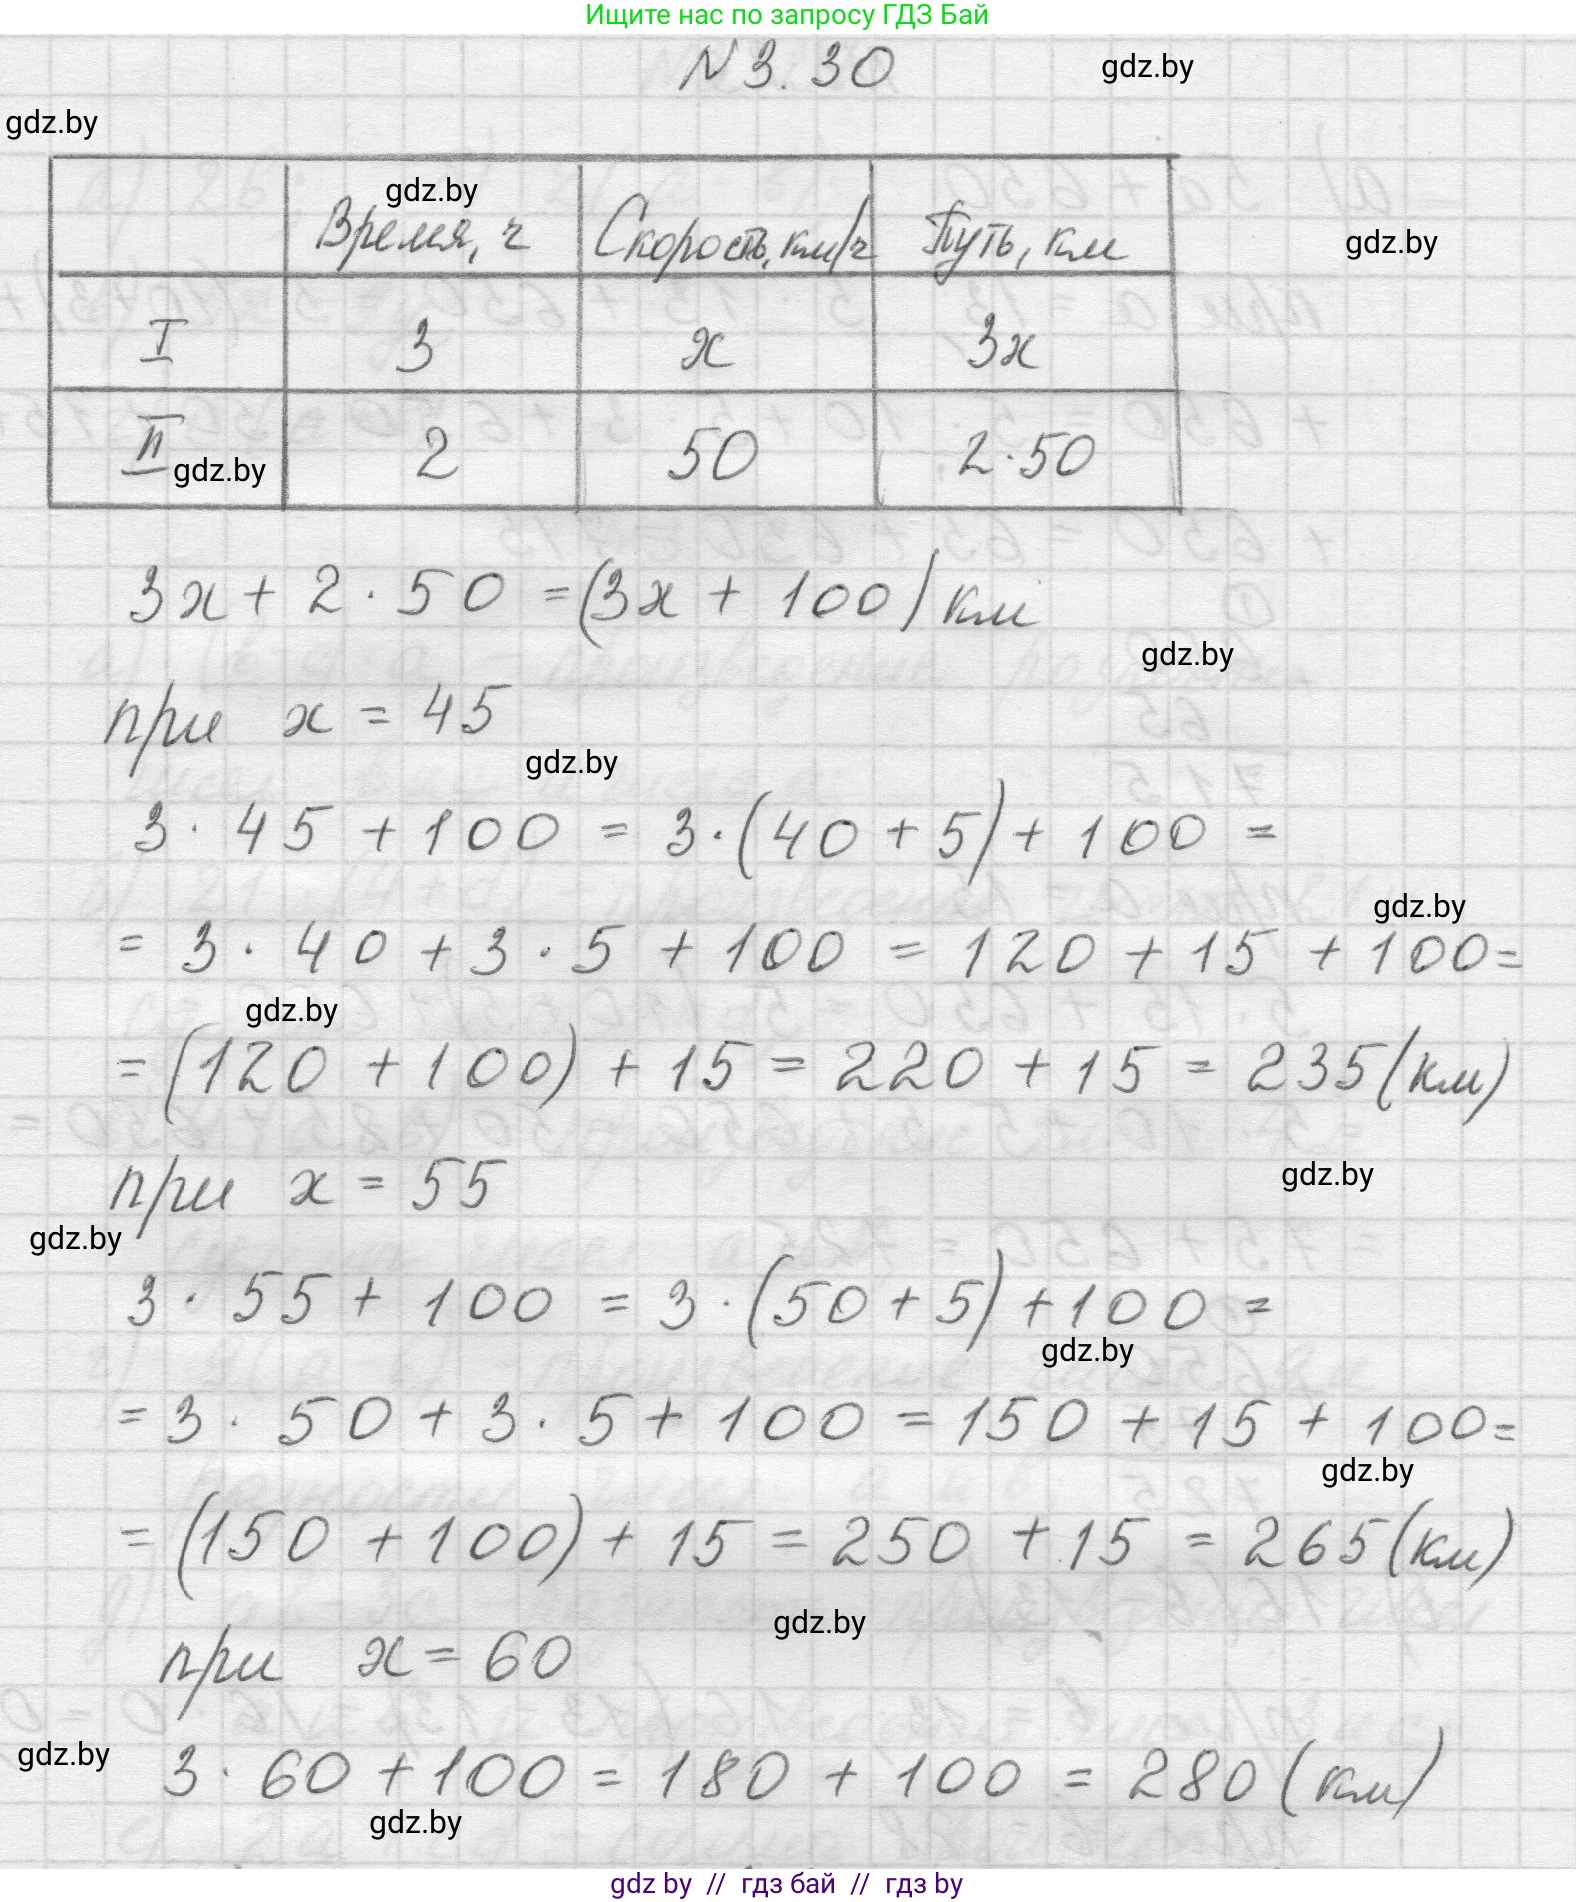 Ищите нас по запросу ГДЗ Бай
N 3.30
gdz.by
gdz.by
gdz.by
Время, ч Скорость, км/ч Путь, км
gdz.by
I 3 x 3x
II 2 50 2·50
gdz.by
3x + 2 · 50 = (3x + 100) км
gdz.by
при x = 45
gdz.by
3 · 45 + 100 = 3 · (40 + 5) + 100 =
gdz.by
= 3 · 40 + 3 · 5 + 100 = 120 + 15 + 100 =
gdz.by
= (120 + 100) + 15 = 220 + 15 = 235 (км)
при x = 55
gdz.by
gdz.by
3 · 55 + 100 = 3 · (50 + 5) + 100 =
gdz.by
= 3 · 50 + 3 · 5 + 100 = 150 + 15 + 100 =
gdz.by
= (150 + 100) + 15 = 250 + 15 = 265 (км)
gdz.by
при x = 60
gdz.by
3 · 60 + 100 = 180 + 100 = 280 (км)
gdz.by
gdz by // гдз бай // гдз by